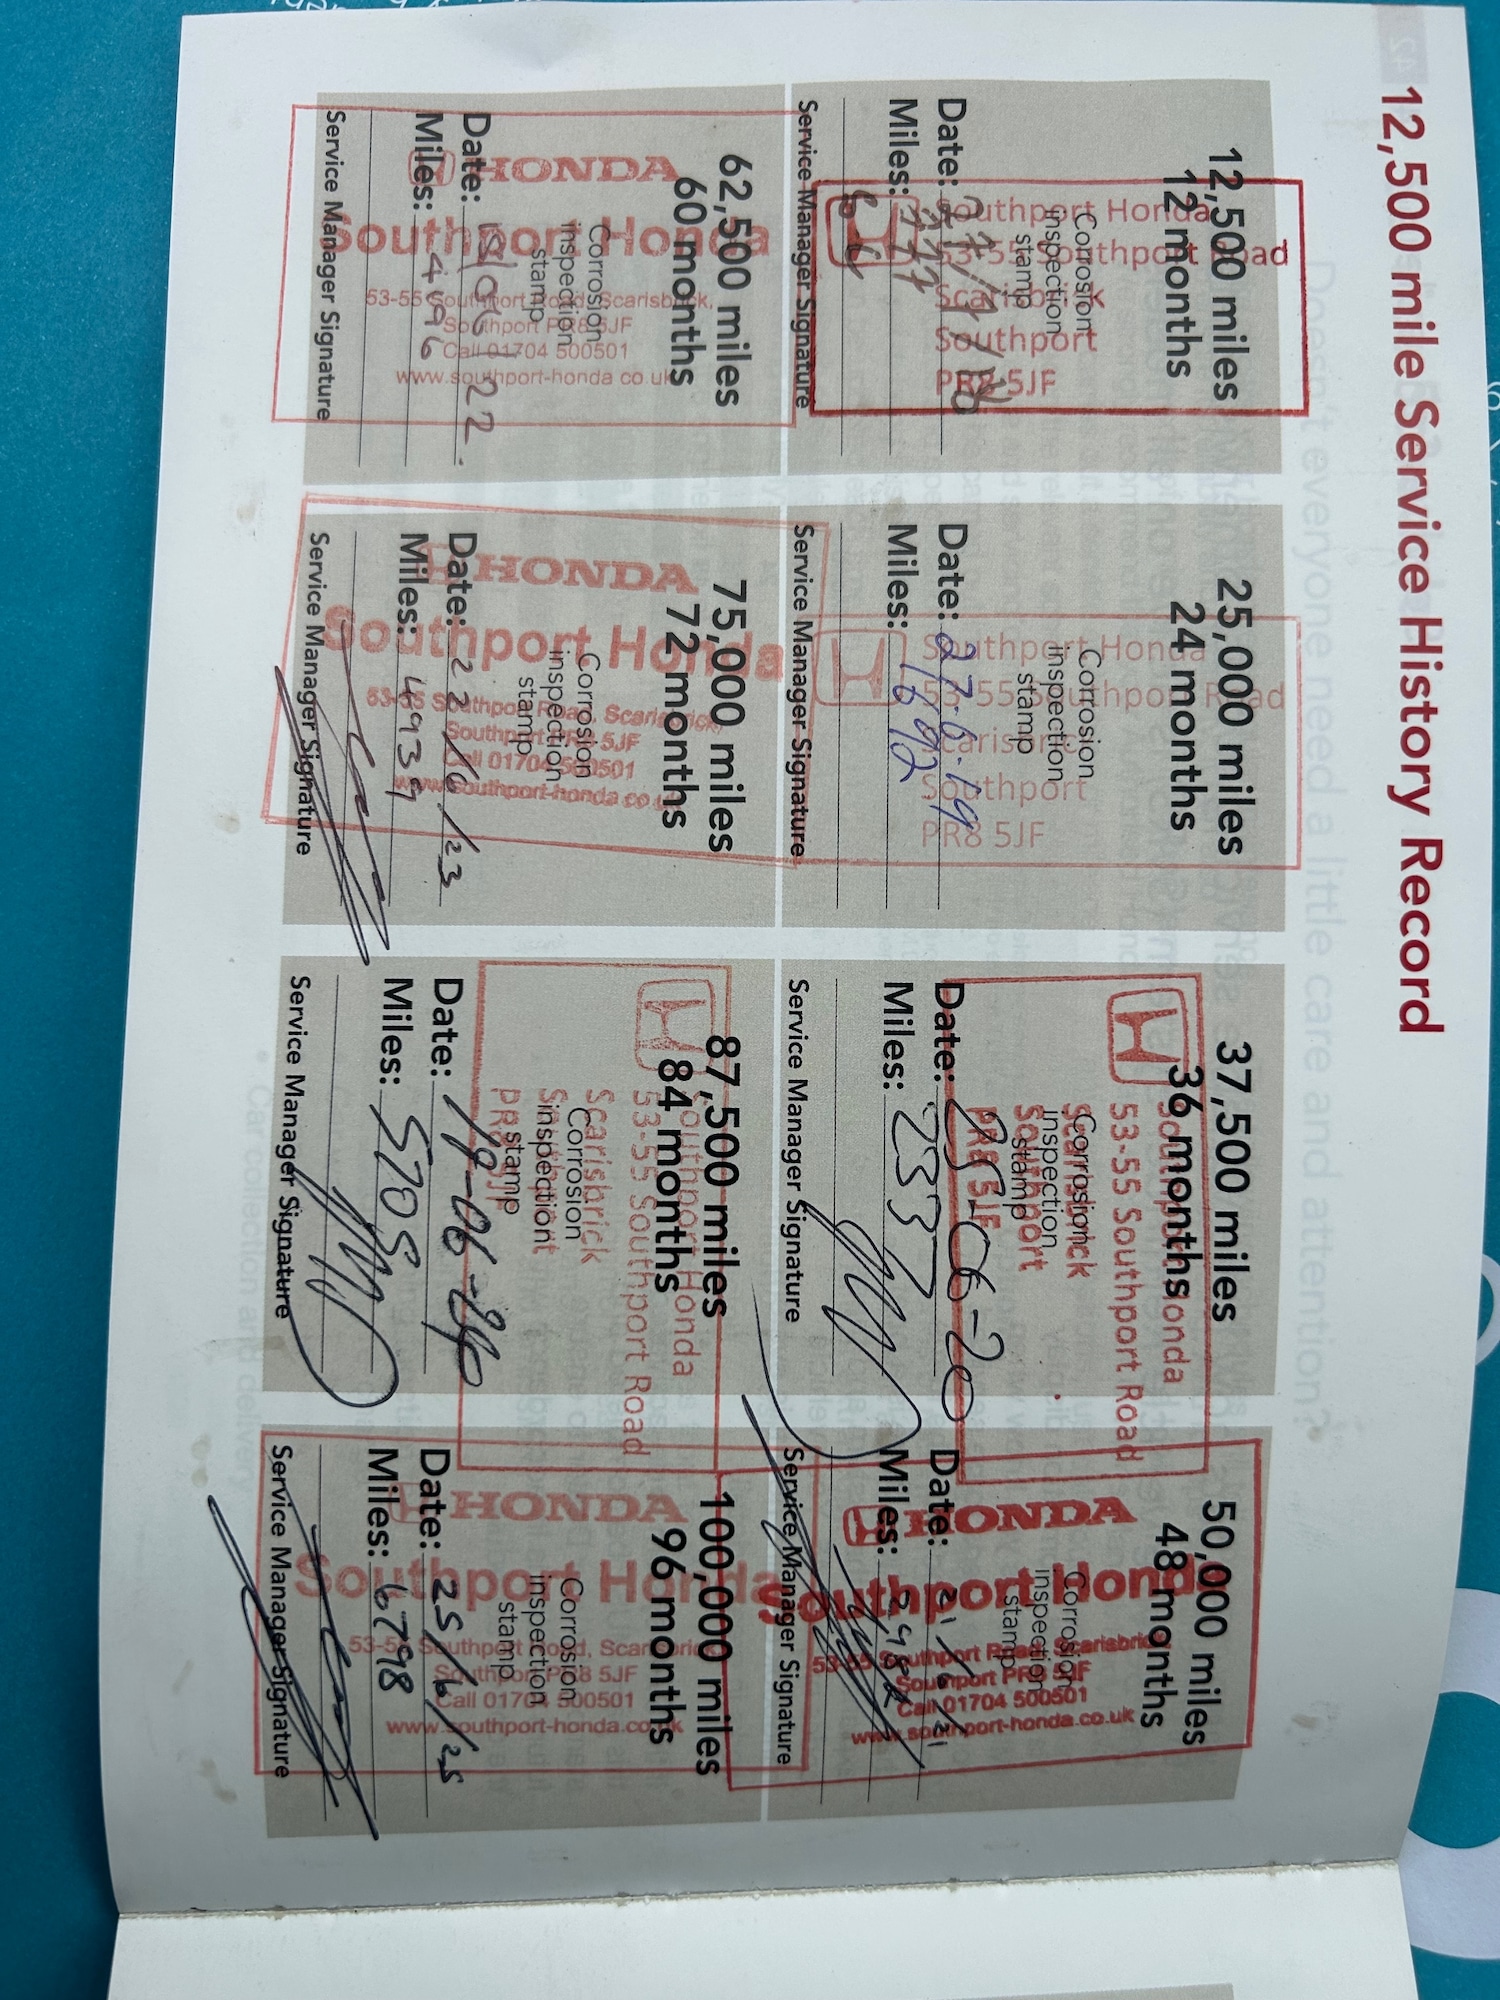 12,500 mile Service History Record
12,500 miles
12 months
Southport Honda
53-55 Southport Road
Scarisbrick
Southport
PR8 5JF
Corrosion
inspection
stamp
Date:
Miles: 777
Service Manager Signature
25,000 miles
24 months
Southport Honda
53-55 Southport Road
Scarisbrick
Southport
PR8 5JF
Corrosion
inspection
stamp
Date: 27.6.19
Miles: 1692
Service Manager Signature
37,500 miles
36 months
Southport Honda
53-55 Southport Road
Scarisbrick
Southport
PR8 5JF
Corrosion
inspection
stamp
Date: 25-06-20
Miles: 2337
Service Manager Signature
50,000 miles
48 months
HONDA
Southport Honda
53-55 Southport Road, Scarisbrick,
Southport PR8 5JF
Call 01704 500501
www.southport-honda.co.uk
Corrosion
inspection
stamp
Date: 21/6/21
Miles: 2,982
Service Manager Signature
62,500 miles
60 months
HONDA
Southport Honda
53-55 Southport Road, Scarisbrick,
Southport PR8 5JF
Call 01704 500501
www.southport-honda.co.uk
Corrosion
inspection
stamp
Date: 22.
Miles: 4096
Service Manager Signature
75,000 miles
72 months
HONDA
Southport Honda
53-55 Southport Road, Scarisbrick,
Southport PR8 5JF
Call 01704 500501
www.southport-honda.co.uk
Corrosion
inspection
stamp
Date: 22/6/23
Miles: 4939
Service Manager Signature
87,500 miles
84 months
Southport Honda
53-55 Southport Road
Scarisbrick
Southport
PR8 5JF
Corrosion
inspection
stamp
Date: 19-06-24
Miles: 5705
Service Manager Signature
100,000 miles
96 months
HONDA
Southport Honda
53-55 Southport Road, Scarisbrick,
Southport PR8 5JF
Call 01704 500501
www.southport-honda.co.uk
Corrosion
inspection
stamp
Date: 25/6/25
Miles: 6798
Service Manager Signature